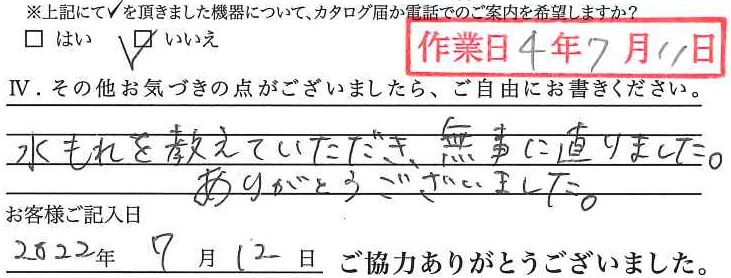 ※上記にて✓を頂きました機器について、カタログ届か電話でのご案内を希望しますか？
□ はい ☑ いいえ
作業日 4年7月11日
Ⅳ．その他お気づきの点がございましたら、ご自由にお書きください。
水もれを教えていただき、無事に直りました。
ありがとうございました。
お客様ご記入日
2022年 7月12日 ご協力ありがとうございました。